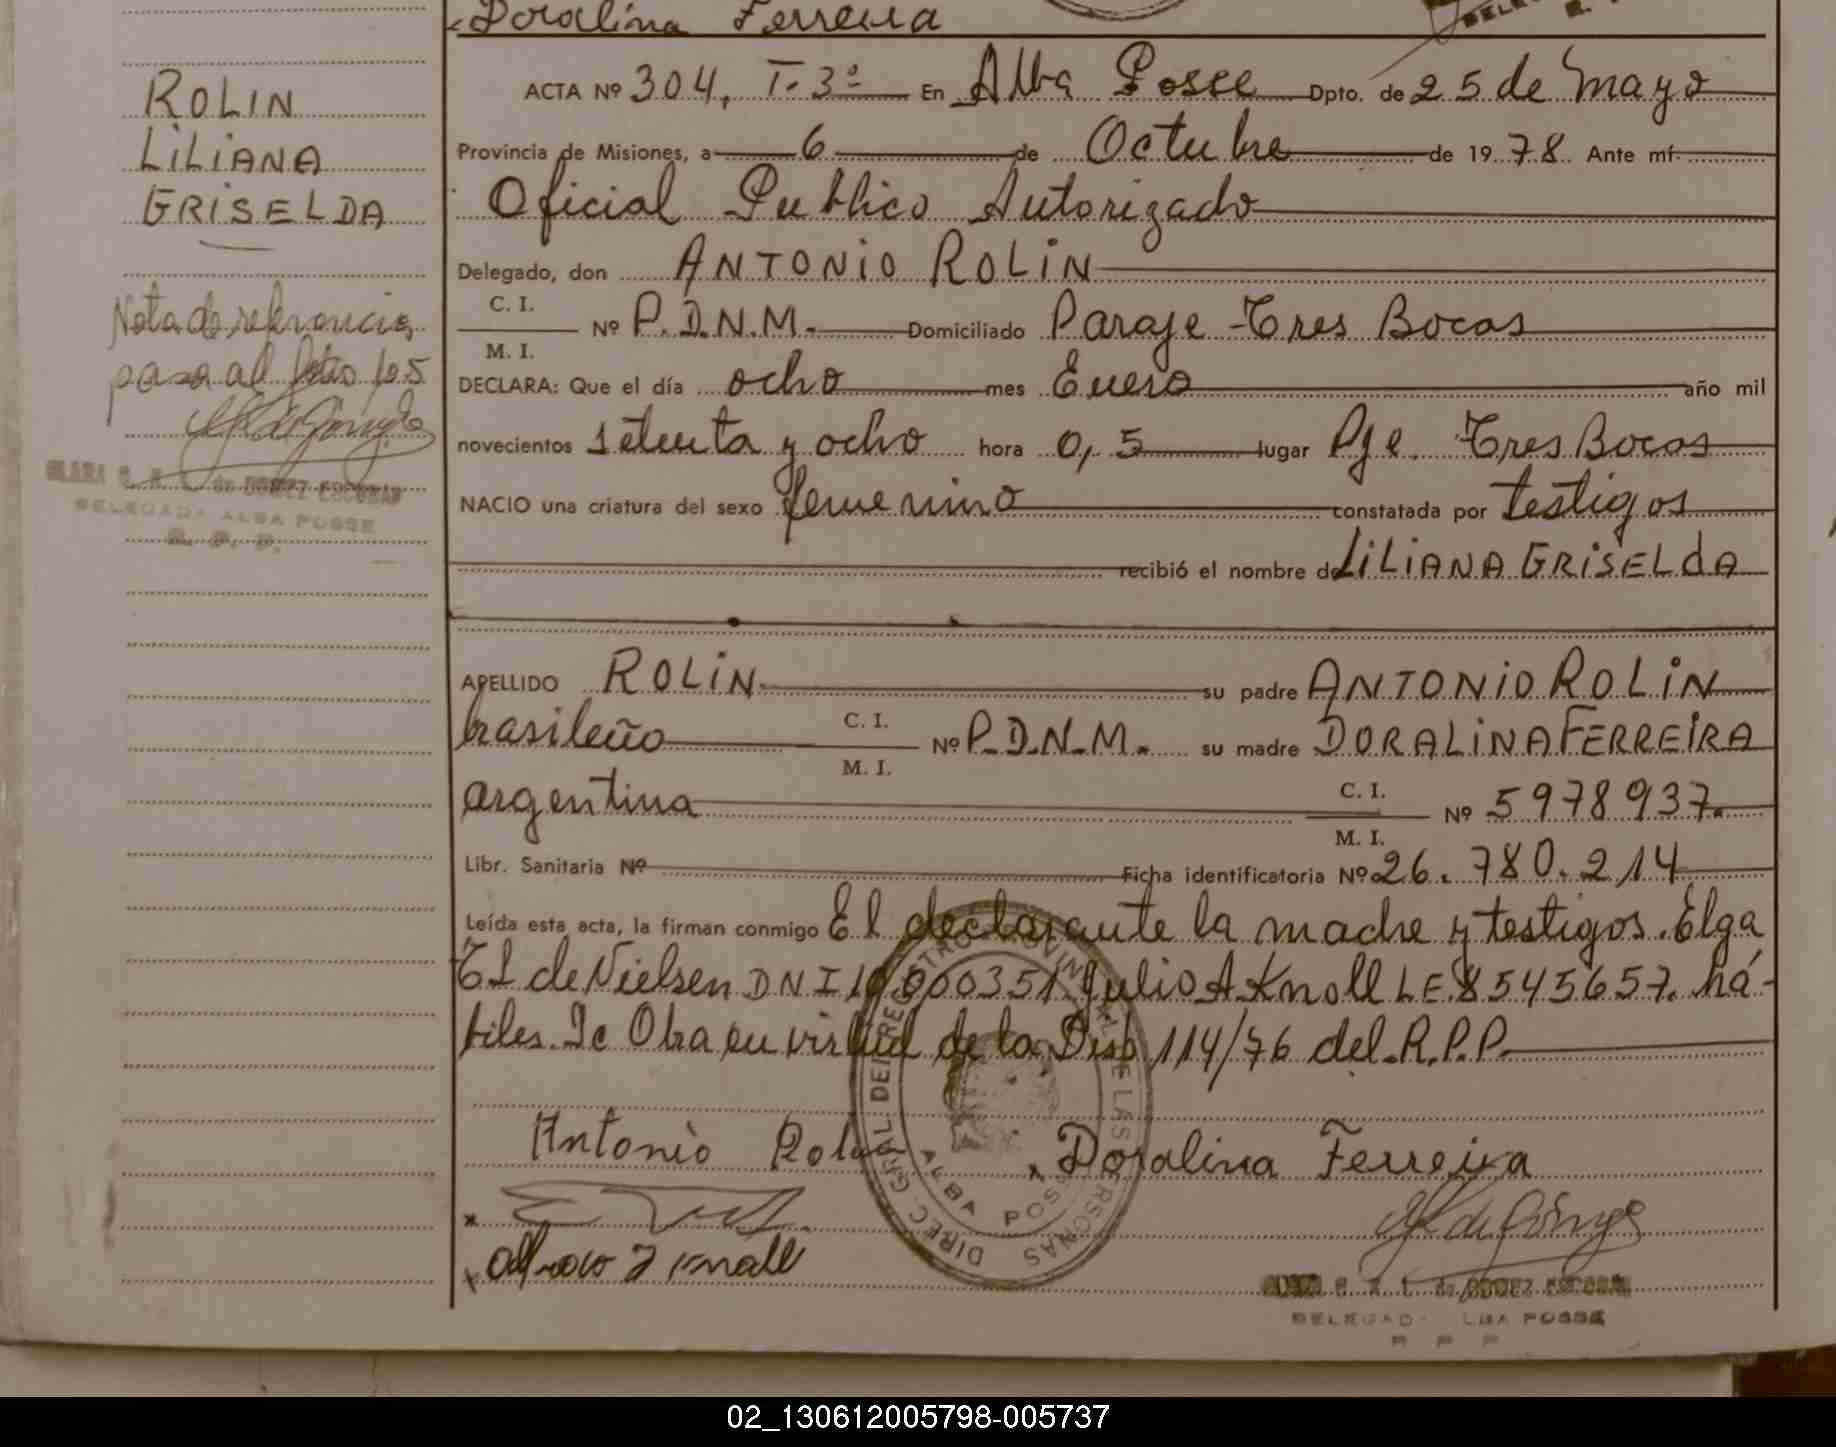 Doralina Ferreira
ROLIN
LILIANA
GRISELDA
Nota de referencia
pasa al folio 105
DELEGADA ALBA POSSE
R. P. P.
ACTA Nº 304, T. 3º En Alba Posse Dpto. de 25 de Mayo
Provincia de Misiones, a 6 de Octubre de 1978 Ante mí
Oficial Publico Autorizado
Delegado, don ANTONIO ROLIN
C. I.
M. I.
Nº P.D.N.M. Domiciliado Paraje Tres Bocas
DECLARA: Que el día ocho mes Enero año mil
novecientos setenta y ocho hora 0,5 lugar Pje. Tres Bocas
NACIO una criatura del sexo femenino constatada por testigos
recibió el nombre de LILIANA GRISELDA
APELLIDO ROLIN su padre ANTONIO ROLIN
brasileño C. I. M. I. Nº P.D.N.M. su madre DORALINA FERREIRA
argentina C. I. M. I. Nº 5978937.
Libr. Sanitaria Nº Ficha identificatoria Nº 26.780.214
Leída esta acta, la firman conmigo El declarante la madre y testigos. Elga
de Nielsen DNI Julio A Knoll LE 8545657. há-
biles. Se Obra en virtud de la Disp 114/76 del R.P.P.
Antonio Rolin Doralina Ferreira
DIREC. GRAL DEL REGISTRO PROVINCIAL DE LAS PERSONAS
ALBA POSSE
DELEGAD LBA POSSE
R P P
02_130612005798-005737